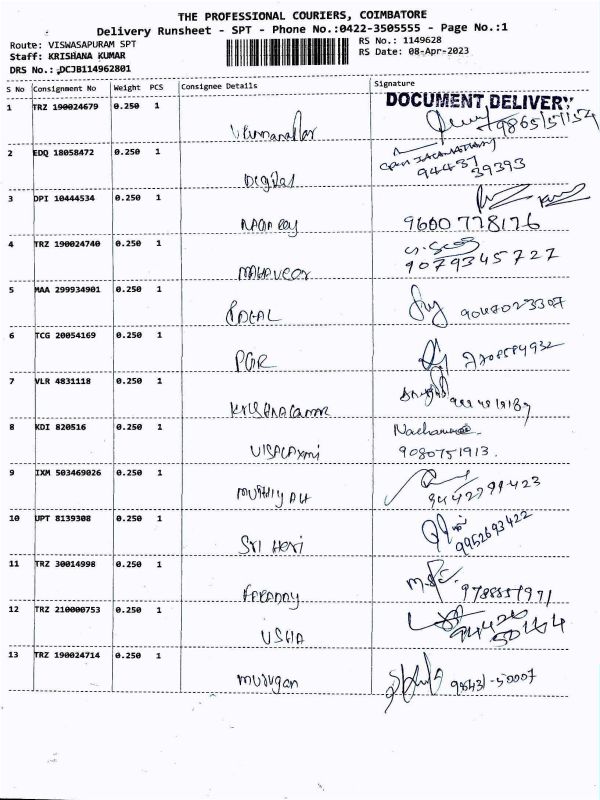 THE PROFESSIONAL COURIERS, COIMBATORE
Delivery Runsheet - SPT - Phone No.:0422-3505555 - Page No.:1
Route: VISWASAPURAM SPT RS No.: 1149628
Staff: KRISHANA KUMAR RS Date: 08-Apr-2023
DRS No.: DCJB114962801
S No Consignment No Weight PCS Consignee Details Signature
DOCUMENT DELIVERY
1 TRZ 190024679 0.250 1
2 EDQ 18058472 0.250 1 Digital 94437 39393
3 DPI 10444534 0.250 1 9600 778176
4 TRZ 190024740 0.250 1 MAHAVEER 9079345727
5 MAA 299934901 0.250 1
6 TCG 20054169 0.250 1 PGR
7 VLR 4831118 0.250 1
8 KDI 820516 0.250 1 VISALAXMI 9080751913.
9 IXM 503469026 0.250 1 9442799423
10 UPT 8139308 0.250 1 SRI HARI 9952693422
11 TRZ 30014998 0.250 1
12 TRZ 210000753 0.250 1 USHA
13 TRZ 190024714 0.250 1 Murugan 98431-50007